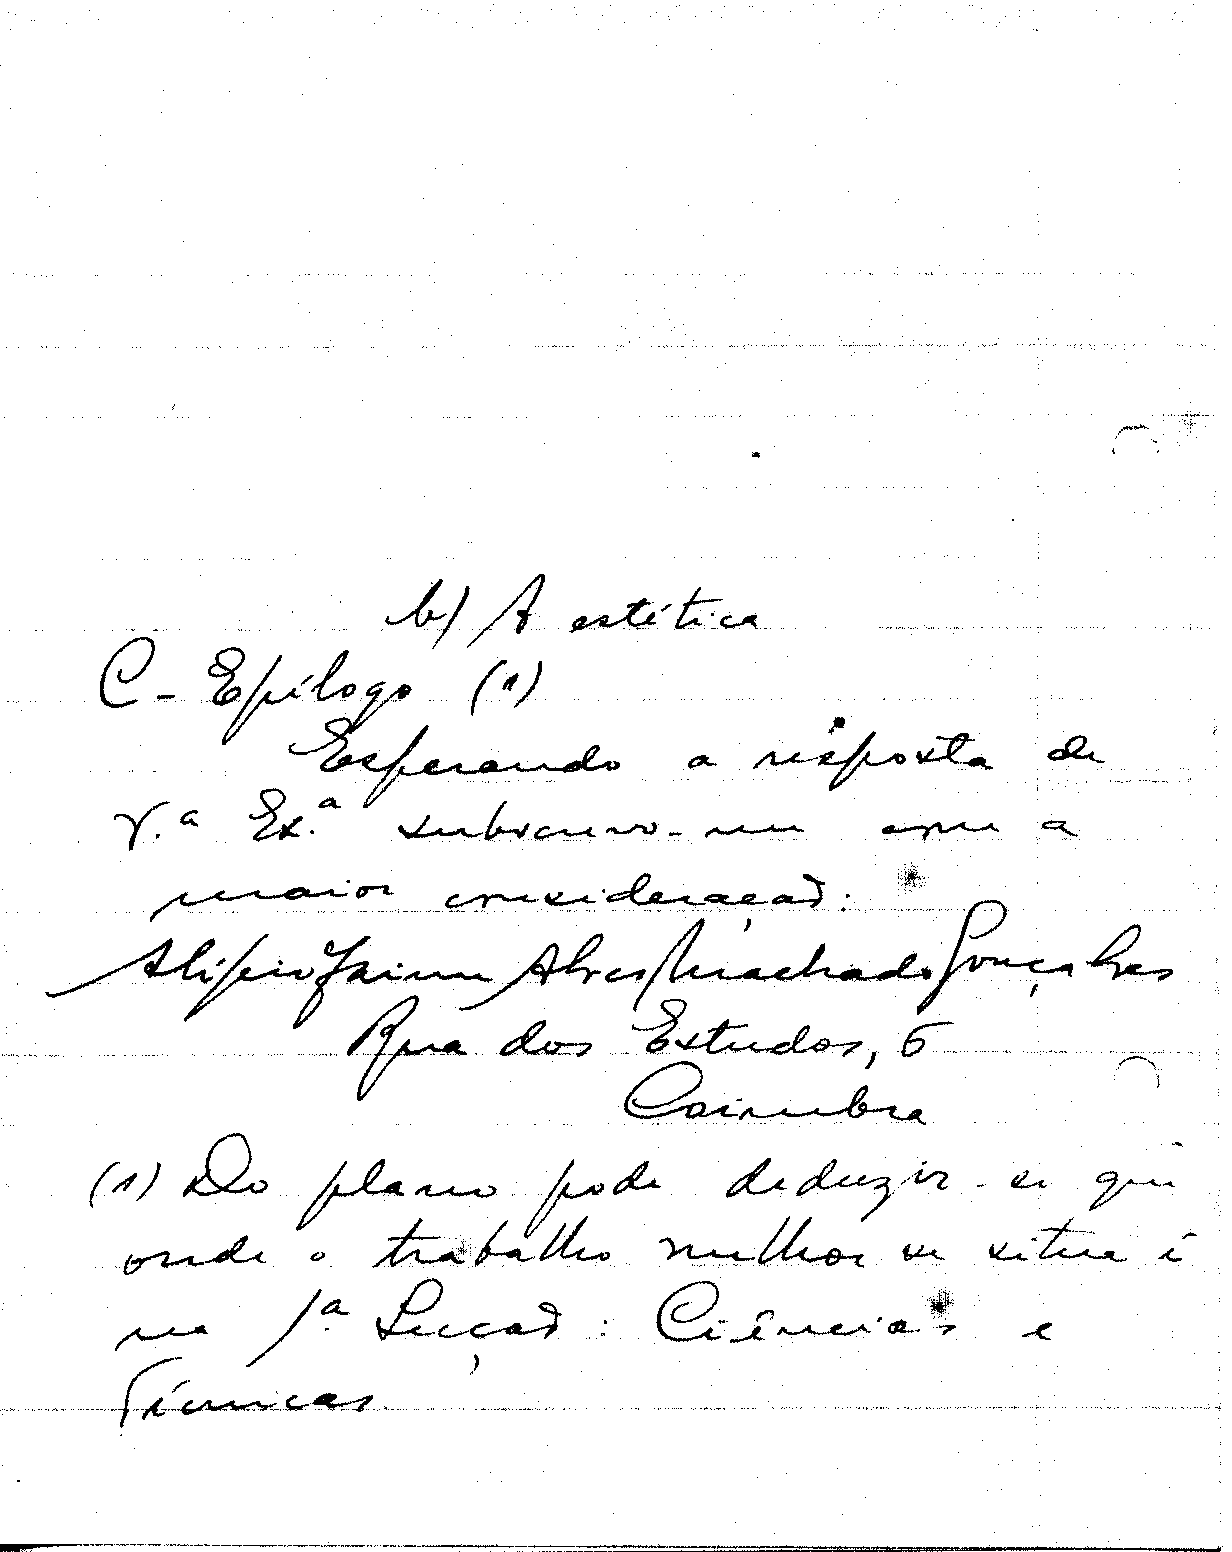 b) A estética
C - Epílogo (1)
Esperando a resposta de
V.ª Ex.ª subscrevo-me com a
maior consideração:
Alípio Jaime Alves Machado Gonçalves
Rua dos Estudos, 6
Coimbra
(1) Do plano pode deduzir-se que
onde o trabalho melhor se situa é
na 1.ª Secção: Ciências e
Técnicas